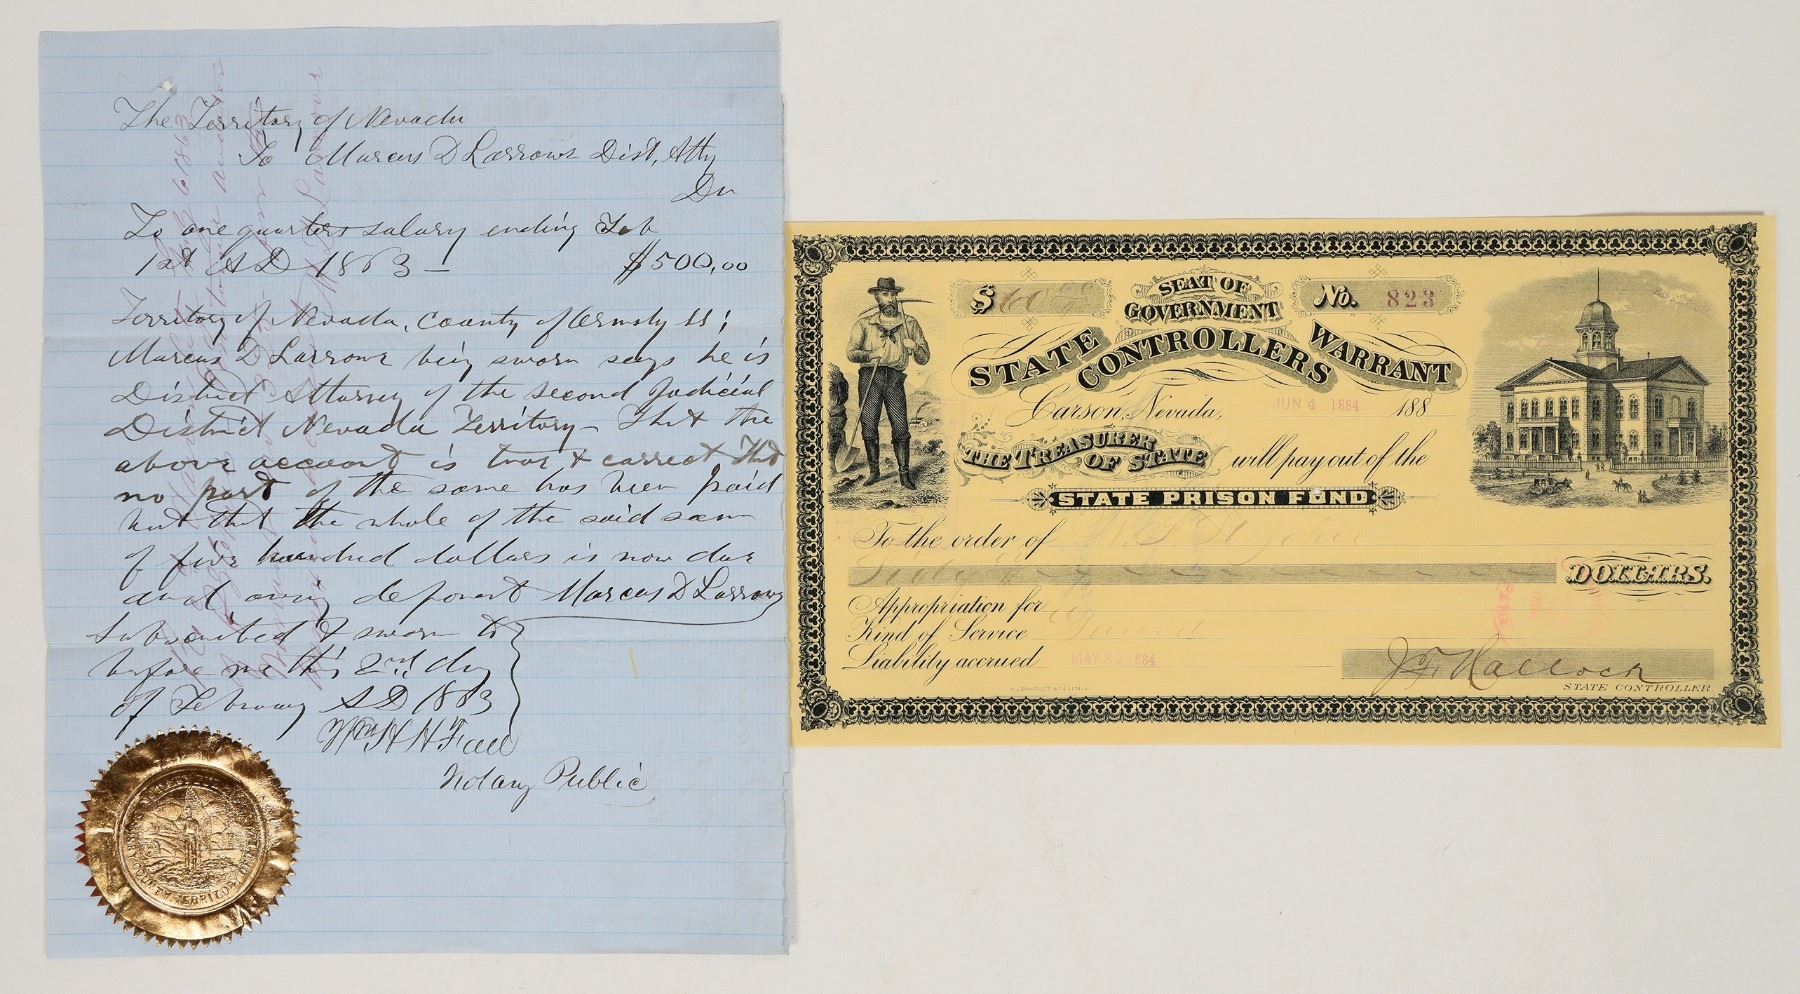 The Territory of Nevada
To Marcus D Larrowe Dist, Atty
Dr
To one quarters salary ending Feb
1st AD 1863 — $500,00
Territory of Nevada, County of Ormsby ss;
Marcus D Larrowe being sworn says he is
District Attorney of the second Judicial
District Nevada Territory — That the
above account is true & correct That
no part of the same has been paid
but that the whole of the said sum
of five hundred dollars is now due
and owing deponent Marcus D Larrowe
Subscribed & sworn to
before me this 2nd day
of February AD 1863
Wm H H Fall
Notary Public
COUNTY, TERRITORY OF
$ 60
SEAT OF
GOVERNMENT
No. 823
STATE CONTROLLERS WARRANT
Carson, Nevada, JUN 4 1884 188
THE TREASURER
OF STATE will pay out of the
STATE PRISON FUND
To the order of
Sixty DOLLARS.
Appropriation for
Kind of Service Guard
Liability accrued MAY 31 1884
J F Hallock
STATE CONTROLLER